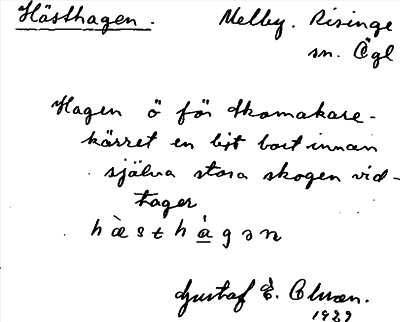 Hästhagen. Melby. Risinge
sn. Ögl
Hagen ö för skomakare-
kärret en bit bort innan
själva stora skogen vid-
tager
hæ̀sthàgən
Gustaf E. Olsson.
1929